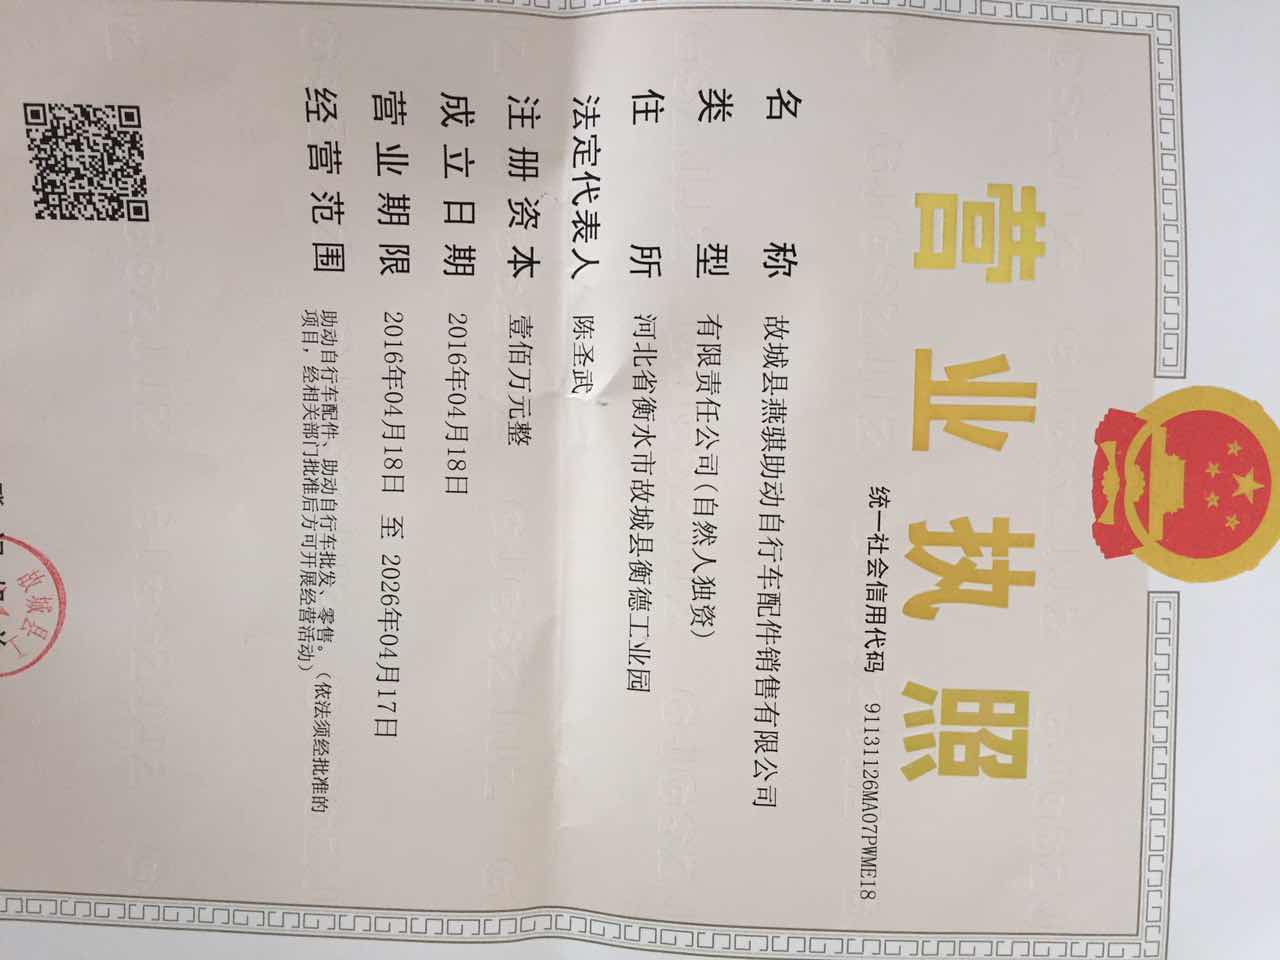 营业执照
统一社会信用代码 91131126MA07PWME18
名称 故城县燕骐助动自行车配件销售有限公司
类型 有限责任公司(自然人独资)
住所 河北省衡水市故城县衡德工业园
法定代表人 陈圣武
注册资本 壹佰万元整
成立日期 2016年04月18日
营业期限 2016年04月18日 至 2026年04月17日
经营范围 助动自行车配件、助动自行车批发、零售。(依法须经批准的
项目,经相关部门批准后方可开展经营活动)
故城县工